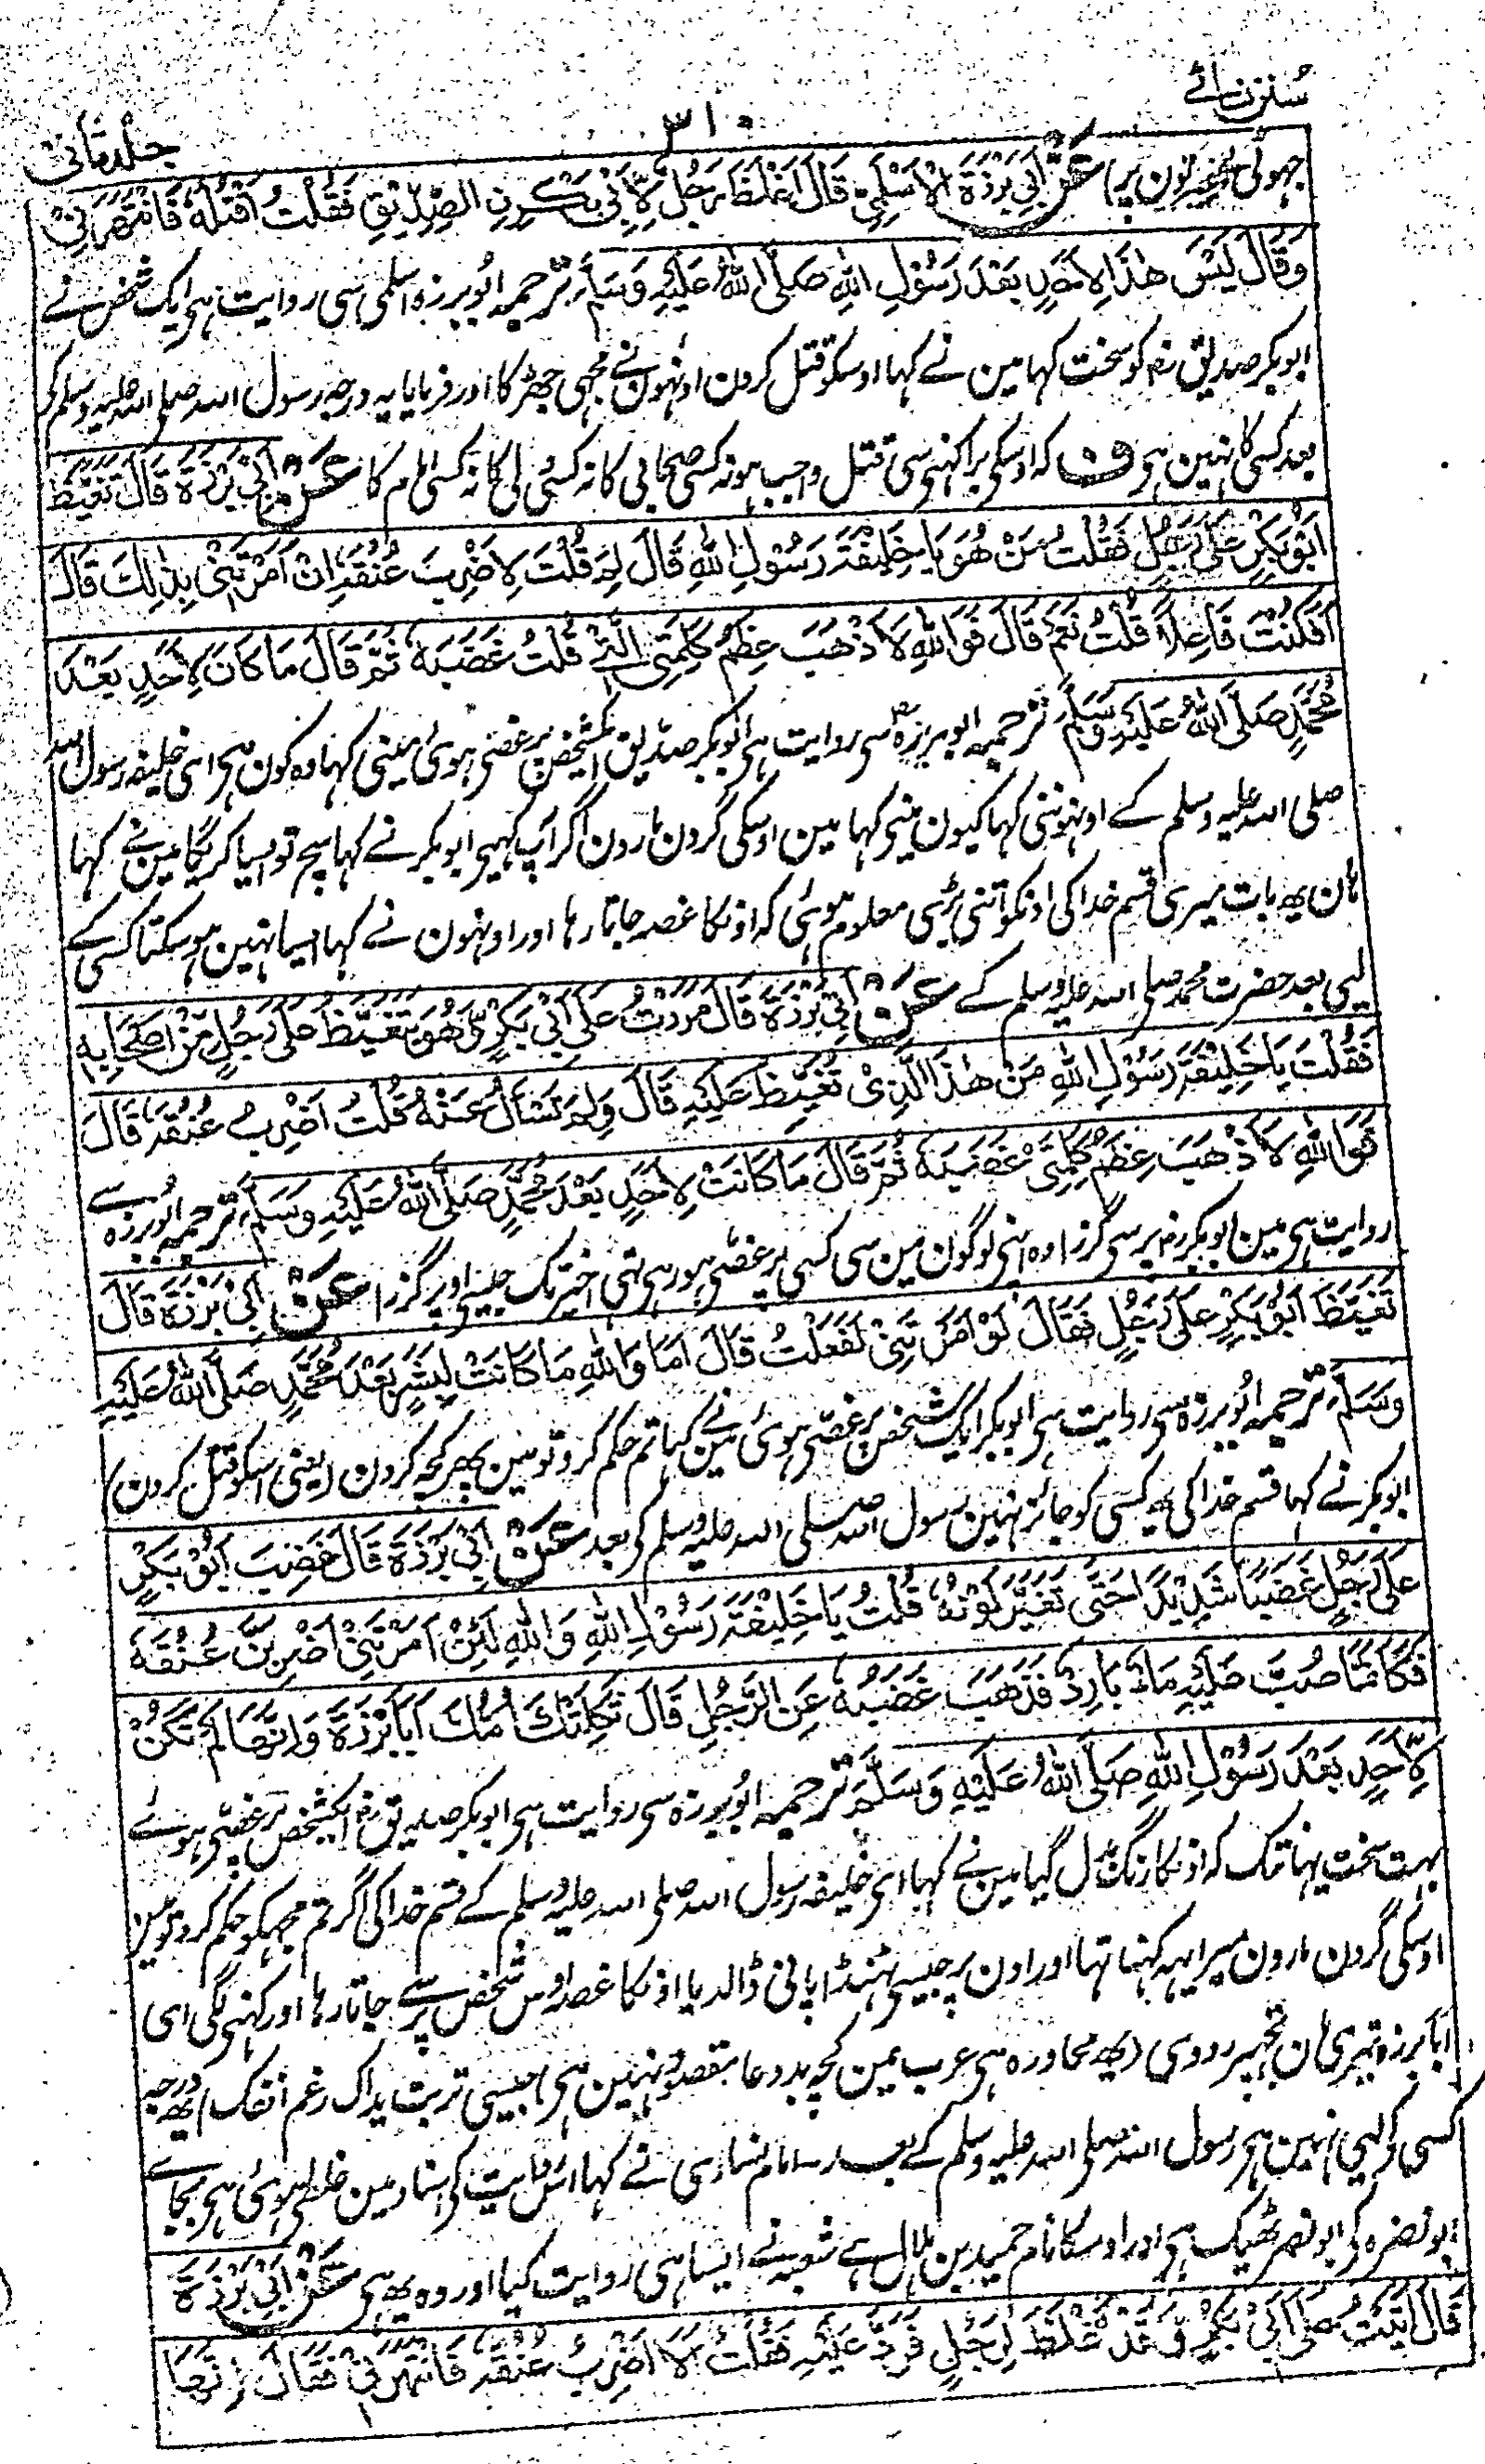 سنن نسائے
۳۱۰
جلد ثانی
جہوٹی پیغیرون پر) عَنْ اَبِیْ بَرْزَةَ الْاَسْلَمِیِّ قَالَ اَغْلَظَ رَجُلٌ لِاَبِیْ بَكْرِنِ الصِّدِّیْقِ فَقُلْتُ اَقْتُلُهٗ فَانْتَهَرَنِیْ
وَقَالَ لَیْسَ هٰذَا لِاَحَدٍ بَعْدَ رَسُوْلِ اللهِ صَلَّی اللهُ عَلَیْهِ وَسَلَّمَ ترجمہ ابُو برزہ اسلمی سی روایت ہی ایک شخص نے
ابوبکر صدیق رض کو سخت کہا مین نے کہا اوسکو قتل کرون اونہون نے مجہی جھڑکا اور فرمایا یہ درجہ رسول اللہ صلی اللہ علیہ وسلم کے
بعد کسی کا نہین ہی ف کہ اوسکی برا کہنی سی قتل واجب ہو نہ کسی صحابی کا نہ کسی ولی کا نہ کسی امام کا عَنْ اَبِیْ بَرْزَةَ قَالَ تَغَیَّظَ
اَبُوْ بَكْرٍ عَلٰی رَجُلٍ فَقُلْتُ مَنْ هُوَ یَا خَلِیْفَةَ رَسُوْلِ اللهِ قَالَ لِمَ قُلْتُ لِاَضْرِبَ عُنُقَهٗ اِنْ اَمَرْتَنِیْ بِذٰلِكَ قَالَ
اَفَكُنْتَ فَاعِلًا قُلْتُ نَعَمْ قَالَ فَوَاللهِ لَاَذْهَبَ عِظَمُ كَلِمَتِیَ الَّتِیْ قُلْتُ غَضَبَهٗ ثُمَّ قَالَ مَا كَانَ لِاَحَدٍ بَعْدَ
مُحَمَّدٍ صَلَّی اللهُ عَلَیْهِ وَسَلَّمَ ترجمہ ابو برزہ رض سی روایت ہی ابوبکر صدیق ایکشخص پر غصی ہوئی مینی کہا وہ کون ہی ای خلیفہ رسول اللہ
صلی اللہ علیہ وسلم کے اونہوننی کہا کیون مینی کہا مین اوسکی گردن مارون اگر آپ کہیی ابوبکر نے کہا سچ تو ایسا کریگا مین نے کہا
ہان یھ بات میری قسم خدا کی اونکو اتنی بڑی معلوم ہوئی کہ اونکا غصہ جاتا رہا اور اونہون نے کہا ایسا نہین ہو سکتا کسی کے
لیی بعد حضرت محمد صلی اللہ علیہ وسلم کے عَنْ اَبِیْ بَرْزَةَ قَالَ مَرَرْتُ عَلٰی اَبِیْ بَكْرٍ وَّهُوَ یَتَغَیَّظُ عَلٰی رَجُلٍ مِّنْ اَصْحَابِهٖ
فَقُلْتُ یَا خَلِیْفَةَ رَسُوْلِ اللهِ مَنْ هٰذَا الَّذِیْ تَغَیَّظُ عَلَیْهِ قَالَ وَلِمَ تَسْاَلُ عَنْهُ قُلْتُ اَضْرِبُ عُنُقَهٗ قَالَ
فَوَاللهِ لَاَذْهَبَ عِظَمُ كَلِمَتِیْ غَضَبَهٗ ثُمَّ قَالَ مَا كَانَتْ لِاَحَدٍ بَعْدَ مُحَمَّدٍ صَلَّی اللهُ عَلَیْهِ وَسَلَّمَ ترجمہ ابُو برزہ سے
روایت ہی مین ابوبکر رض پر سی گزرا وہ اپنی لوگون مین سی کسی پر غصی ہو رہی تہی اخیر تک جیسی اوپر گزرا عَنْ اَبِیْ بَرْزَةَ قَالَ
تَغَیَّظَ اَبُوْ بَكْرٍ عَلٰی رَجُلٍ فَقَالَ لَوْ اَمَرْتَنِیْ لَفَعَلْتُ قَالَ اَمَا وَاللهِ مَا كَانَتْ لِبَشَرٍ بَعْدَ مُحَمَّدٍ صَلَّی اللهُ عَلَیْهِ
وَسَلَّمَ ترجمہ ابُو برزہ سی روایت ہی ابوبکر ایک شخص پر غصی ہوئی مین نے کہا تم حکم کرو تو مین پھر کچہ کرون (یعنی اسکو قتل کرون)
ابوبکر نے کہا قسم خدا کی یھ کسی کو جائز نہین رسول اللہ صلی اللہ علیہ وسلم کی بعد عَنْ اَبِیْ بَرْزَةَ قَالَ غَضِبَ اَبُوْ بَكْرٍ
عَلٰی رَجُلٍ غَضَبًا شَدِیْدًا حَتّٰی تَغَیَّرَ لَوْنُهٗ قُلْتُ یَا خَلِیْفَةَ رَسُوْلِ اللهِ وَاللهِ لَئِنْ اَمَرْتَنِیْ لَاَضْرِبَنَّ عُنُقَهٗ
فَكَاَنَّمَا صُبَّ عَلَیْهِ مَاءٌ بَارِدٌ فَذَهَبَ غَضَبُهٗ عَنِ الرَّجُلِ قَالَ ثَكِلَتْكَ اُمُّكَ اَبَا بَرْزَةَ وَاِنَّهَا لَمْ تَكُنْ
لِاَحَدٍ بَعْدَ رَسُوْلِ اللهِ صَلَّی اللهُ عَلَیْهِ وَسَلَّمَ ترجمہ ابُو برزہ سی روایت ہی ابوبکر صدیق رض ایکشخص پر غصی ہوئے
بہت سخت یہانتک کہ اونکا رنگ بدل گیا مین نے کہا ای خلیفہ رسول اللہ صلی اللہ علیہ وسلم کے قسم خدا کی اگر تم مجہکو حکم کرو تو مین
اوسکی گردن مارون میرا یہہ کہنا تہا اور اون پر جیسی ٹہنڈا پانی ڈالدیا اونکا غصہ اوس شخص پر سے جاتا رہا اور کہنی لگی ای
ابا برزہ تیری مان تجہپر رووی (یھ محاورہ ہی عرب مین کچہ بددعا مقصود نہین ہی جیسی تربت یداک رغم انفک) یھ درجہ
کسی کو لیی نہین ہی رسول اللہ صلی اللہ علیہ وسلم کے بعد۔ امام نسائی نے کہا اس روایت کی اسناد مین غلطی ہوئی ہی بجائے
ابو نضرہ کی ابو نصر ٹھیک ہی اور اوسکا نام حمید بن ہلال ہے شعبہ نے ایسا ہی روایت کیا اور وہ یھ ہی عَنْ اَبِیْ بَرْزَةَ
قَالَ اَتَیْتُ عَلٰی اَبِیْ بَكْرٍ وَّقَدْ غَلَظَ لِرَجُلٍ فَرَدَّ عَلَیْهِ فَقُلْتُ اَلَا اَضْرِبُ عُنُقَهٗ فَانْتَهَرَنِیْ فَقَالَ اِنَّهَا